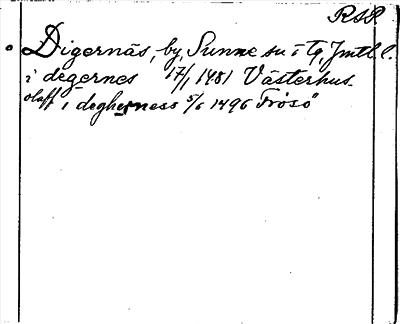 RAP
Digernäs, by, Sunne sn i tg, Jmtl. l.
i degernes 17/1 1481 Västerhus
olaff i degherness 5/6 1496 Frösö